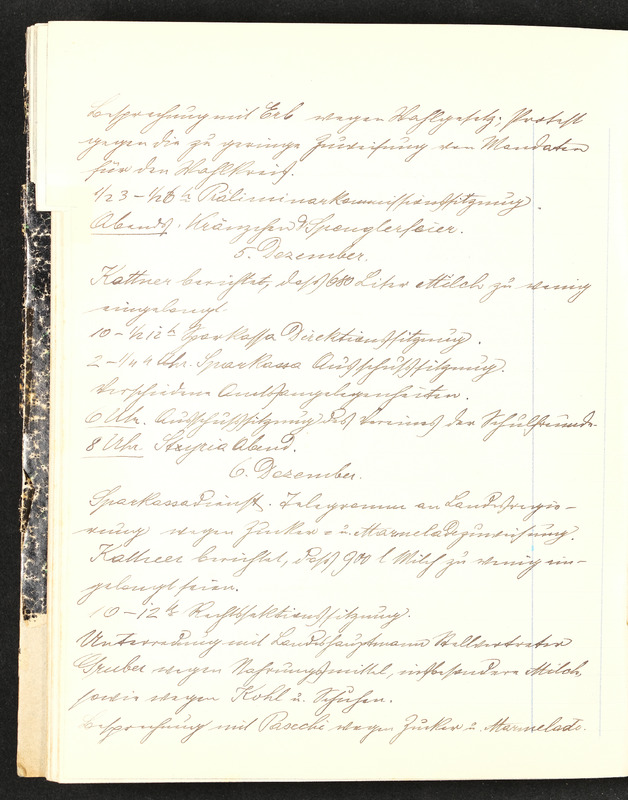 Besprechung mit Erb wegen Wahlgesetz; Protest
gegen die zu geringe Zuweisung von Mandaten
für den Wahlkreis.
1/2 3 – 1/2 6 h Präliminarkommissionssitzung.
Abends. Kränzchen d. Spenglerfeier.
5. Dezember.
Kattner berichtet, daß 680 Liter Milch zu wenig
eingelangt.
10 – 1/2 12 h Sparkassa Direktionssitzung.
2 – 1/4 4 Uhr. Sparkassa Ausschußsitzung.
Verschiedene Amtsangelegenheiten.
6 Uhr. Ausschußsitzung des Vereines der Schulfreunde.
8 Uhr. Styria Abend.
6. Dezember.
Sparkassadienst. Telegramm an Landesregie-
rung wegen Zucker- u. Marmeladezuweisung.
Kattner berichtet, daß 900 l Milch zu wenig ein-
gelangt seien.
10 – 12 h Rechtssektionssitzung.
Unterredung mit Landeshauptmann Stellvertreter
Gruber wegen Nahrungsmittel, insbesondere Milch,
sowie wegen Kohl u. Schuhen.
Besprechung mit Pasechi wegen Zucker u. Marmelade.